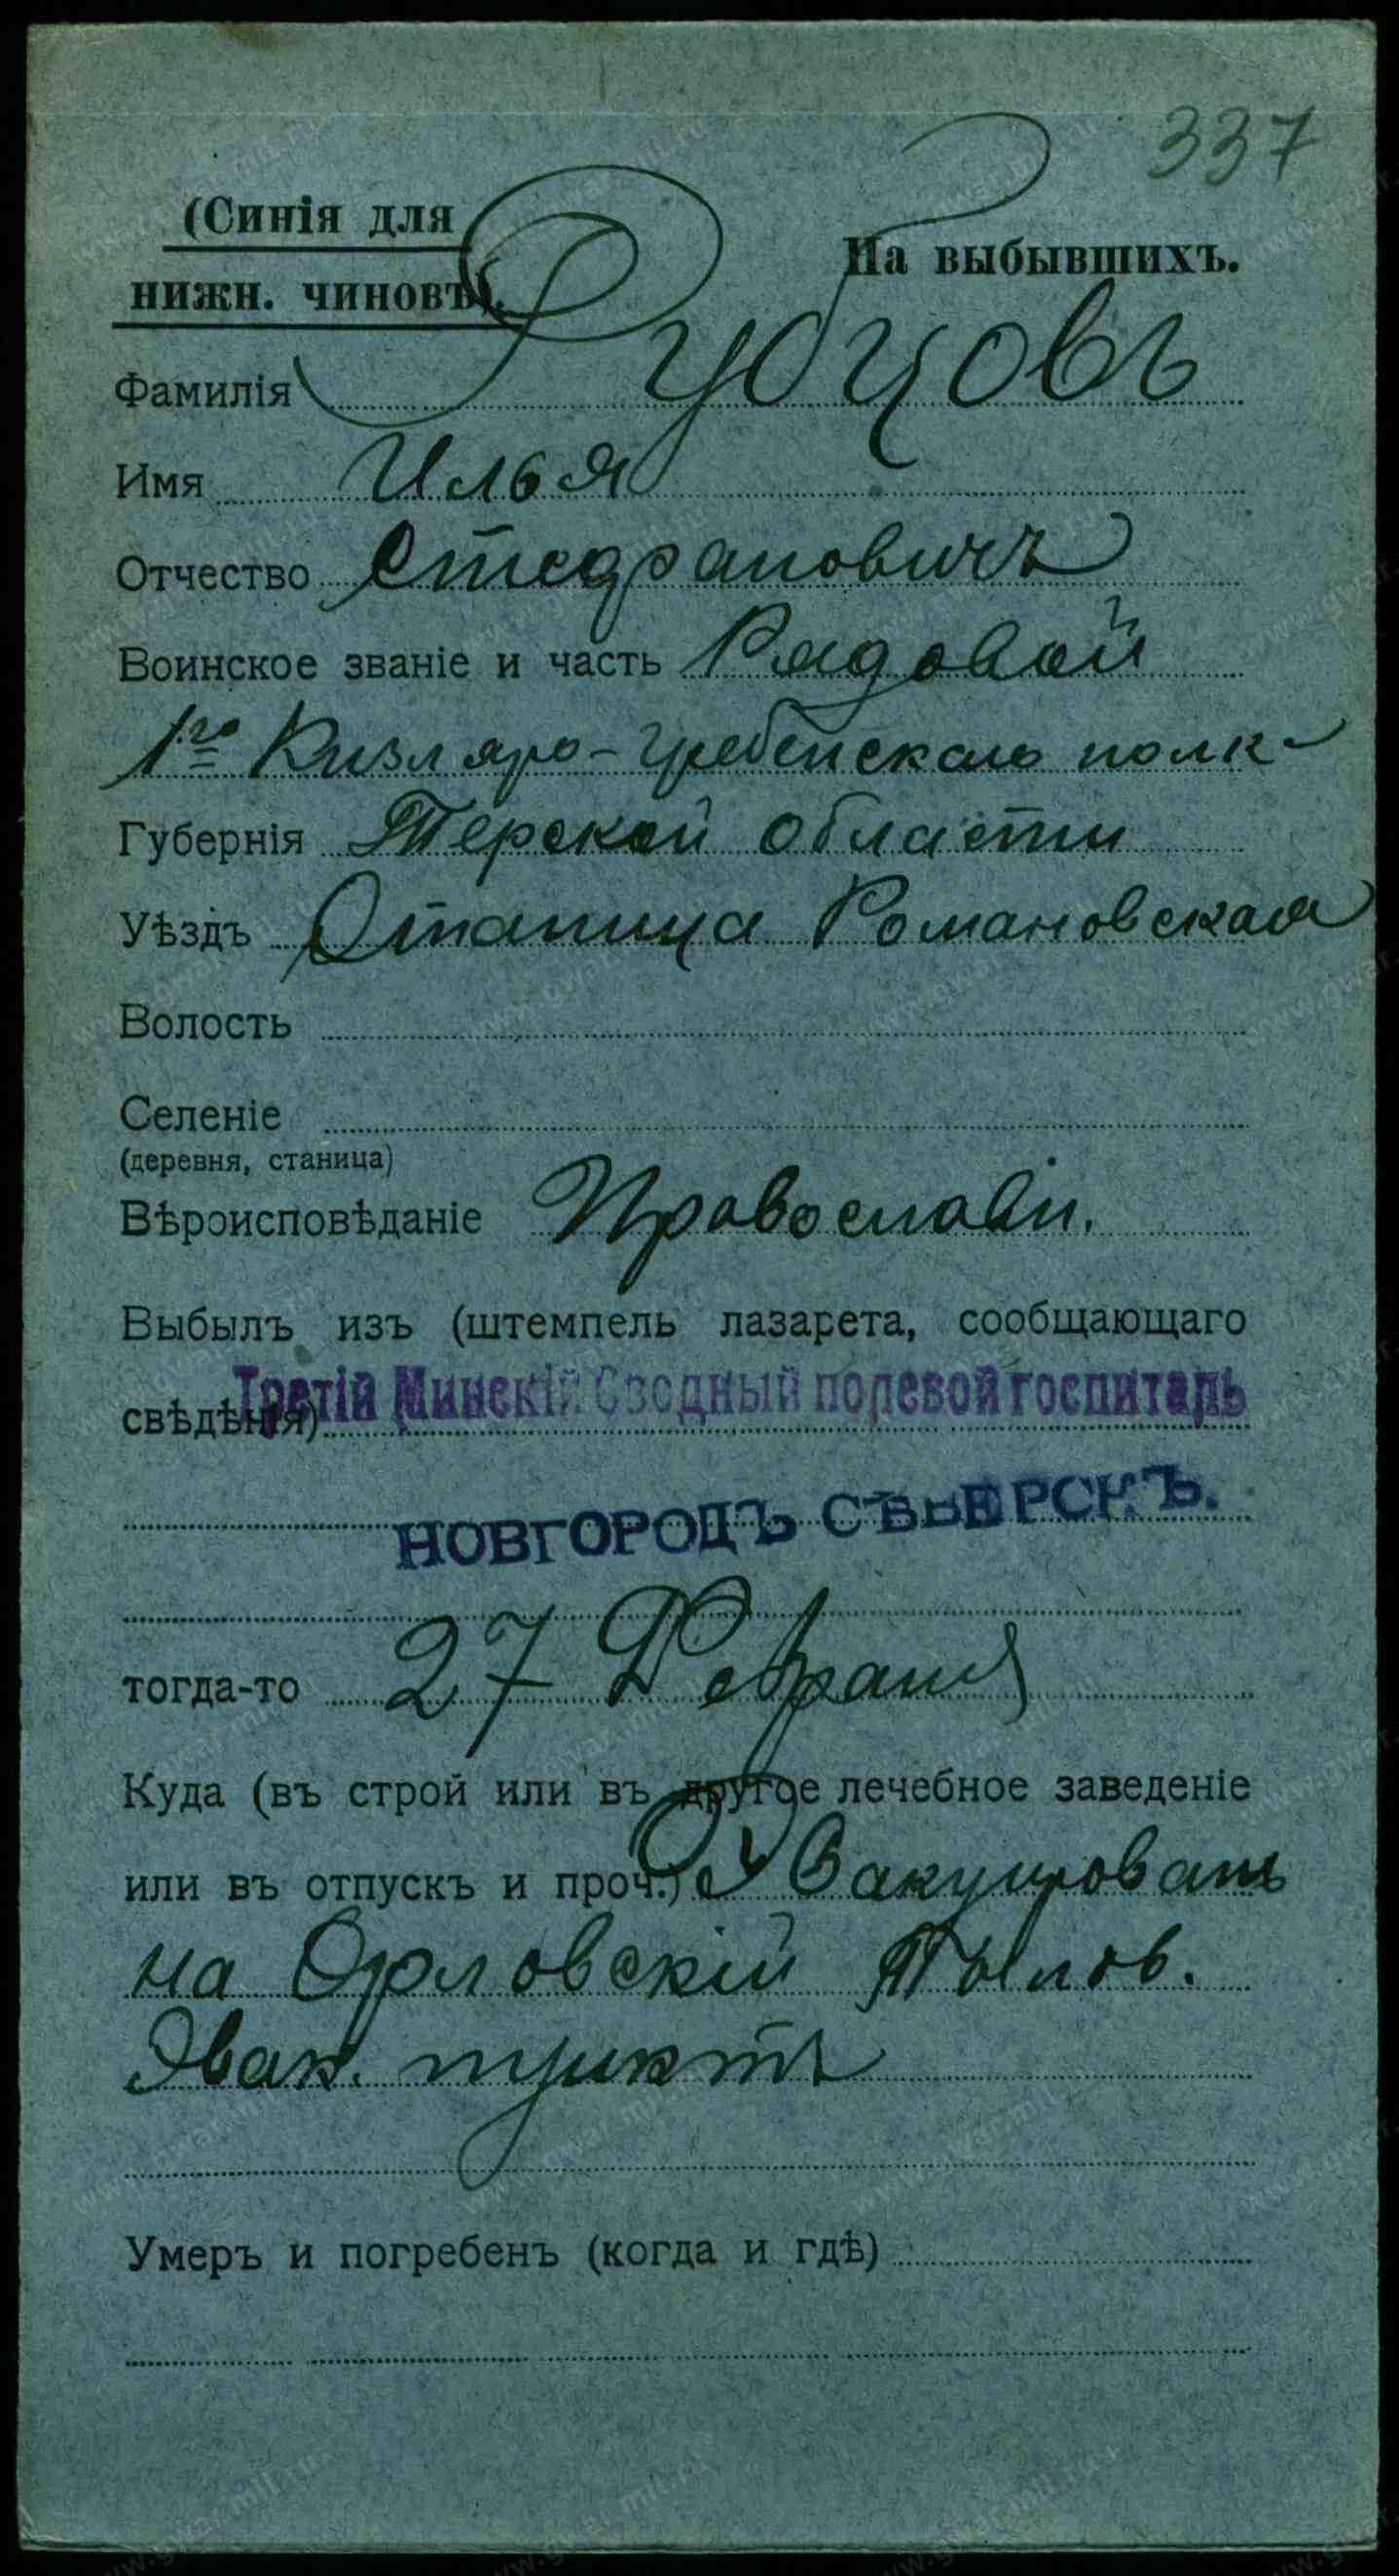 337
(Синія для
На выбывшихъ.
нижн. чиновъ).
Фамилія Рубцовъ
Имя Илья
Отчество Стефановичъ
Воинское званіе и часть Рядовой
1го Кизляро-Гребенскаго полк
Губернія Терской области
Уѣздъ Станица Романовская
Волость
Селеніе
(деревня, станица)
Вѣроисповѣданіе Православн.
Выбылъ изъ (штемпель лазарета, сообщающаго
Третій Минскій Сводный полевой госпиталь
свѣдѣнія)
НОВГОРОДЪ СѢВЕРСКЪ.
тогда-то 27 Февраля
Куда (въ строй или въ другое лечебное заведеніе
или въ отпускъ и проч.) Эвакуированъ
на Орловскій Тылов.
Эвак. пунктъ
Умеръ и погребенъ (когда и гдѣ)
www.gwar.mil.ru